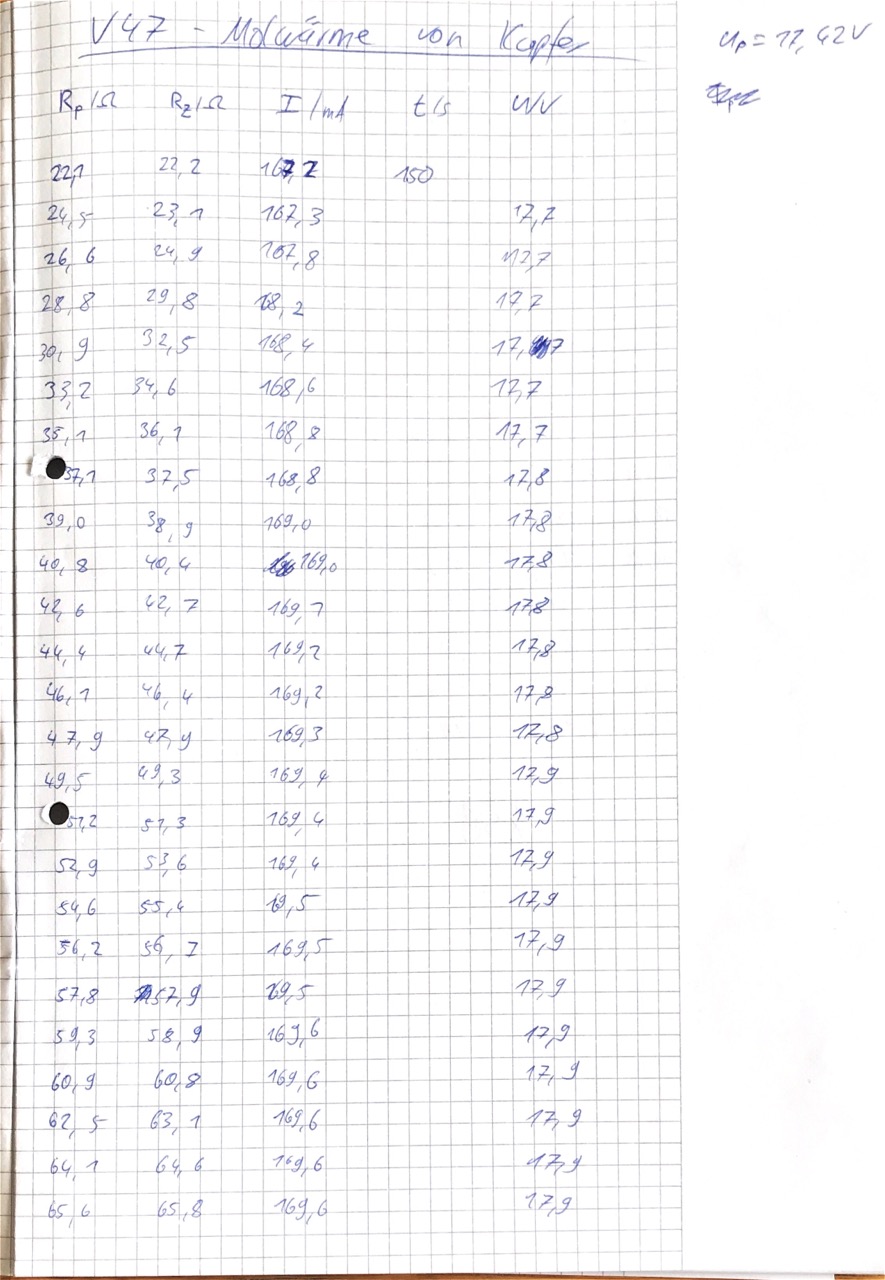 V47 - Molwärme von Kupfer
Up = 17,42V
Rp/Ω Rz/Ω I/mA t/s U/V
22,1 22,2 167,2 150
24,5 23,1 167,3 17,7
26,6 24,9 167,8 17,7
28,8 29,8 168,2 17,7
30,9 32,5 168,4 17,7
33,2 34,6 168,6 17,7
35,1 36,1 168,8 17,7
37,1 37,5 168,8 17,8
39,0 38,9 169,0 17,8
40,8 40,4 169,0 17,8
42,6 42,7 169,1 17,8
44,4 44,7 169,2 17,8
46,1 46,4 169,2 17,8
47,9 47,9 169,3 17,8
49,5 49,3 169,4 17,9
51,2 51,3 169,4 17,9
52,9 53,6 169,4 17,9
54,6 55,4 169,5 17,9
56,2 56,7 169,5 17,9
57,8 57,9 169,5 17,9
59,3 58,9 169,6 17,9
60,9 60,8 169,6 17,9
62,5 63,1 169,6 17,9
64,1 64,6 169,6 17,9
65,6 65,8 169,6 17,9